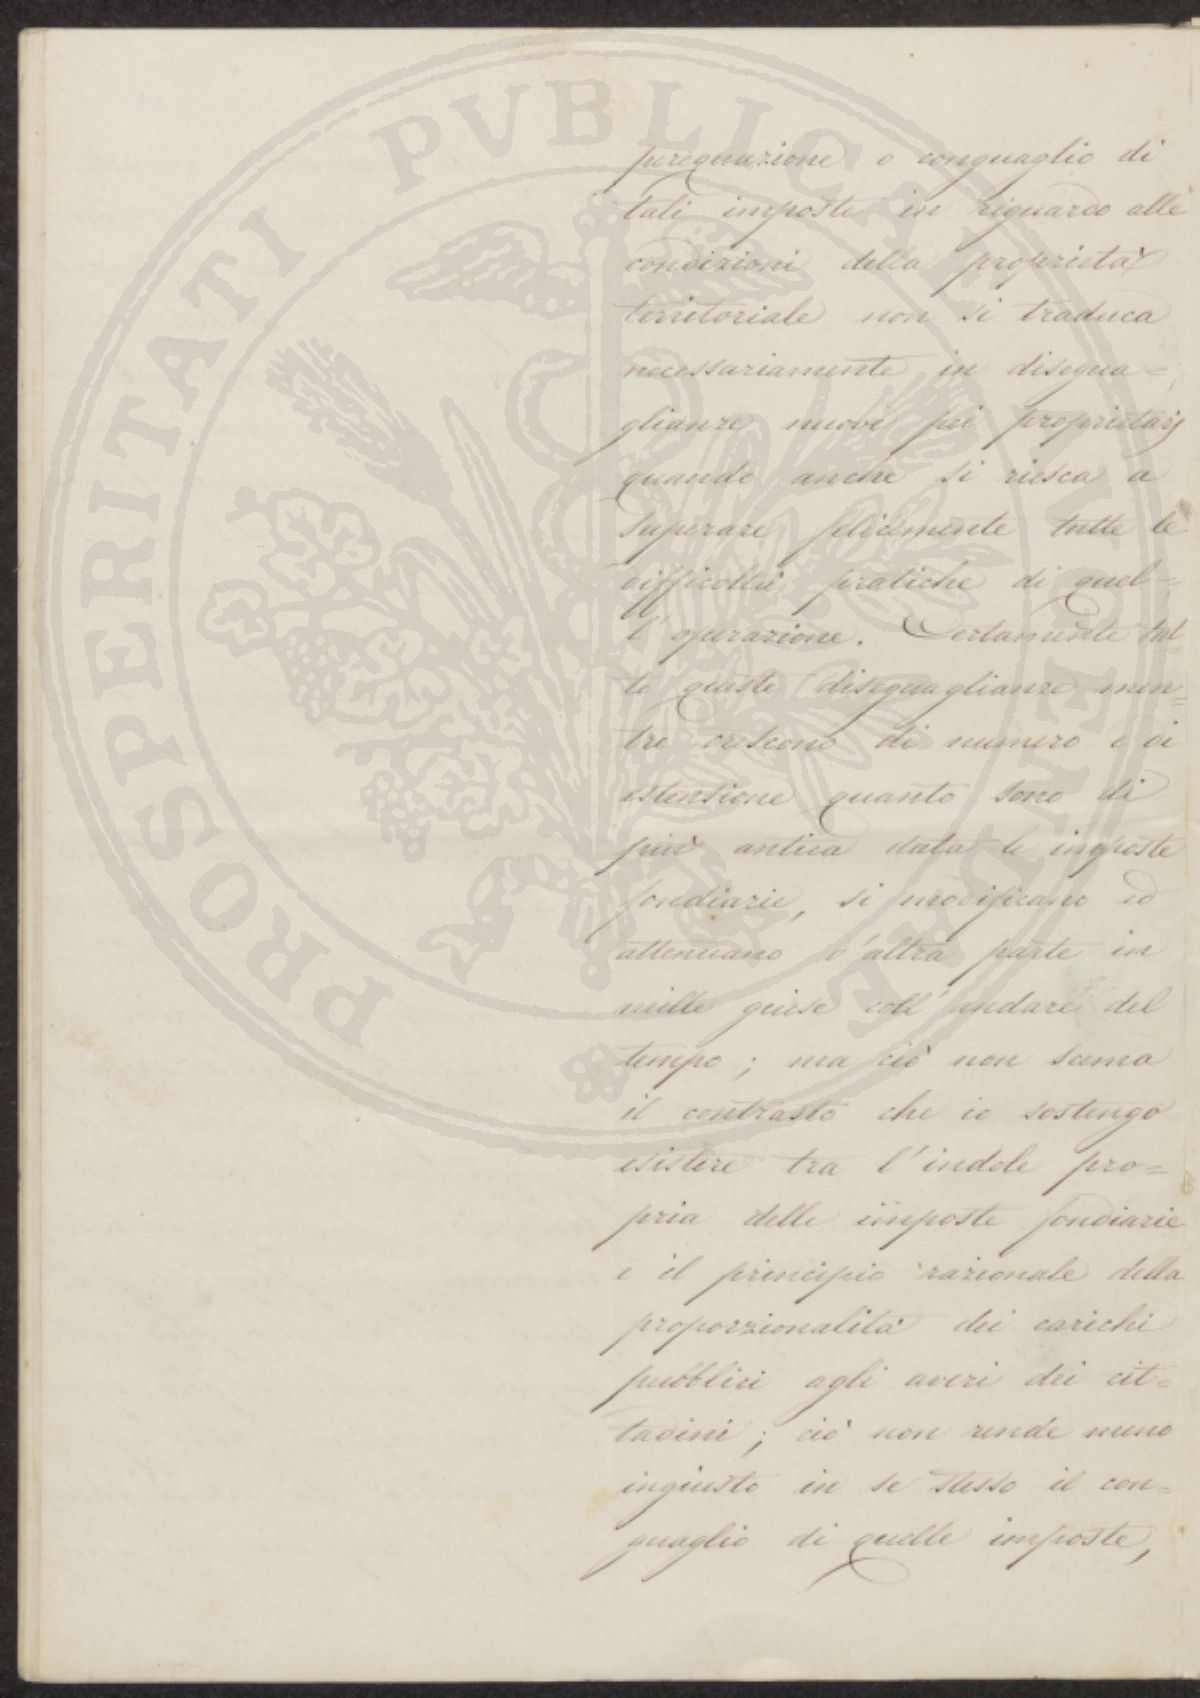 PROSPERITATI PVBLICAE AVGENDAE
perequazione o conguaglio di
tali imposte in riguardo alle
condizioni della proprietà
territoriale non si traduca
necessariamente in disegua=
glianze nuove pei proprietarj
quando anche si riesca a
superare felicemente tutte le
difficoltà pratiche di quel=
l'operazione. Certamente tut=
te queste diseguaglianze men=
tre crescono di numero e di
estensione quanto sono di
più antica data le imposte
fondiarie, si modificano ed
attenuano d'altra parte in
mille guise coll'andare del
tempo; ma ciò non scema
il contrasto che io sostengo
esistere tra l'indole pro=
pria delle imposte fondiarie
e il principio razionale della
proporzionalità dei carichi
pubblici agli averi dei cit=
tadini; ciò non rende meno
ingiusto in se stesso il con=
guaglio di quelle imposte,